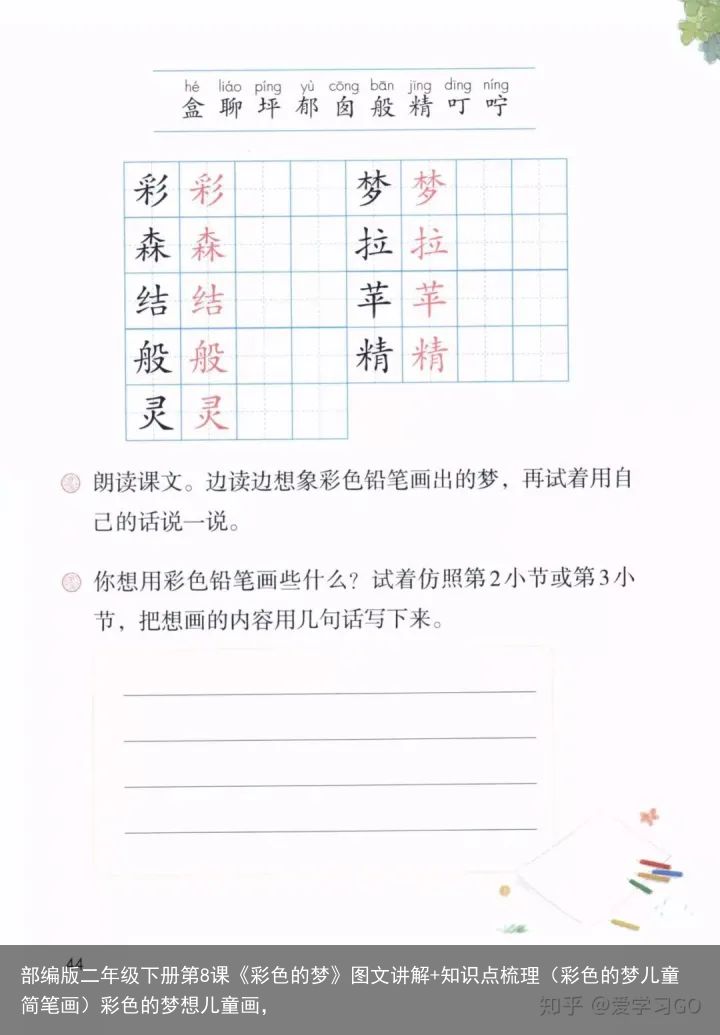 hé liáo píng yù cōng bān jīng dīng níng
盒 聊 坪 郁 囱 般 精 叮 咛
彩 彩 梦 梦
森 森 拉 拉
结 结 苹 苹
般 般 精 精
灵 灵
朗读课文。边读边想象彩色铅笔画出的梦，再试着用自
己的话说一说。
你想用彩色铅笔画些什么？试着仿照第2小节或第3小
节，把想画的内容用几句话写下来。
44
部编版二年级下册第8课《彩色的梦》图文讲解+知识点梳理（彩色的梦儿童
简笔画）彩色的梦想儿童画，
知乎 @爱学习GO